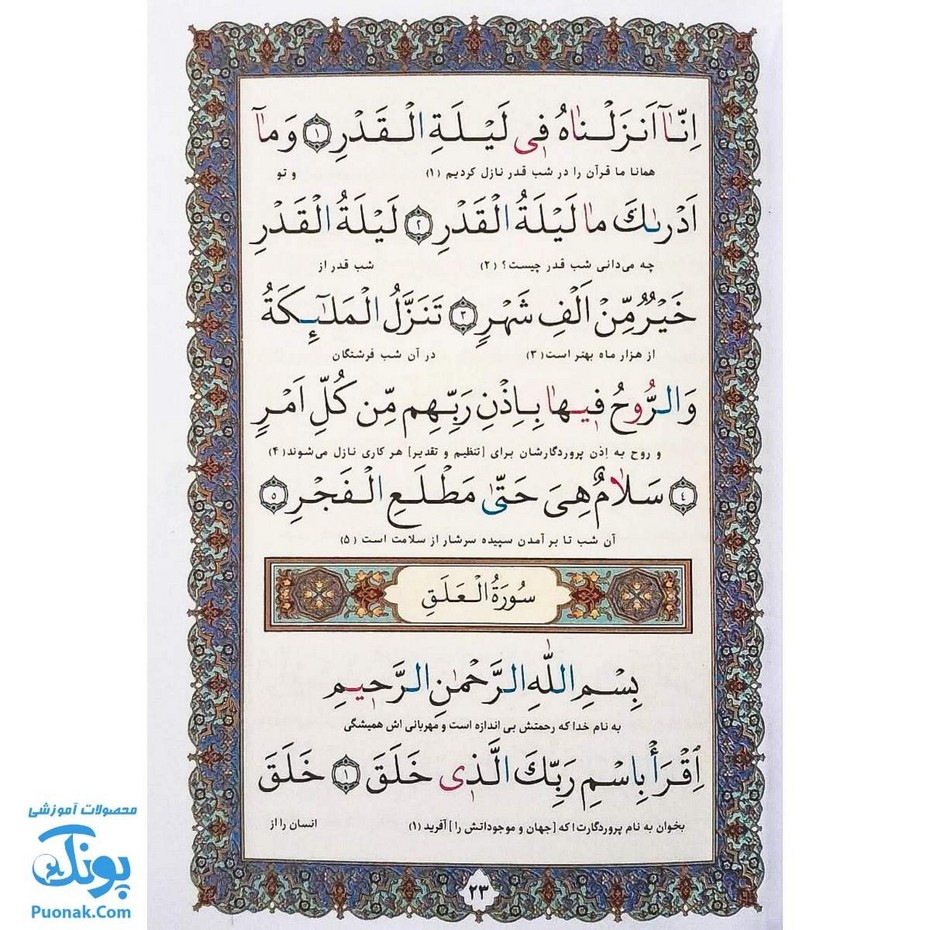 اِنّاۤ اَنزَلْناهُ فی لَیْلَةِ الْقَدْرِ ﴿١﴾ وَماۤ
همانا ما قرآن را در شب قدر نازل کردیم (۱) و تو
اَدْرىٰكَ ما لَیْلَةُ الْقَدْرِ ﴿٢﴾ لَیْلَةُ الْقَدْرِ
چه می‌دانی شب قدر چیست؟ (۲) شب قدر از
خَیْرٌ مِّنْ اَلْفِ شَهْرٍ ﴿٣﴾ تَنَزَّلُ الْمَلٰٓئِكَةُ
از هزار ماه بهتر است (۳) در آن شب فرشتگان
وَالرُّوحُ فیها بِاِذْنِ رَبِّهِم مِّن كُلِّ اَمْرٍ
و روح به اِذن پروردگارشان برای [تنظیم و تقدیر] هر کاری نازل می‌شوند (۴)
﴿٤﴾ سَلامٌ هِیَ حَتّىٰ مَطْلَعِ الْفَجْرِ ﴿٥﴾
آن شب تا بر آمدن سپیده سرشار از سلامت است (۵)
سُورَةُ الْعَلَقِ
بِسْمِ اللّٰهِ الرَّحْمٰنِ الرَّحیمِ
به نام خدا که رحمتش بی اندازه است و مهربانی اش همیشگی
اِقْرَأْ بِاسْمِ رَبِّكَ الَّذی خَلَقَ ﴿١﴾ خَلَقَ
بخوان به نام پروردگارت! که [جهان و موجوداتش را] آفرید (۱) انسان را از
۲۳
محصولات آموزشی
پونک
Puonak.Com